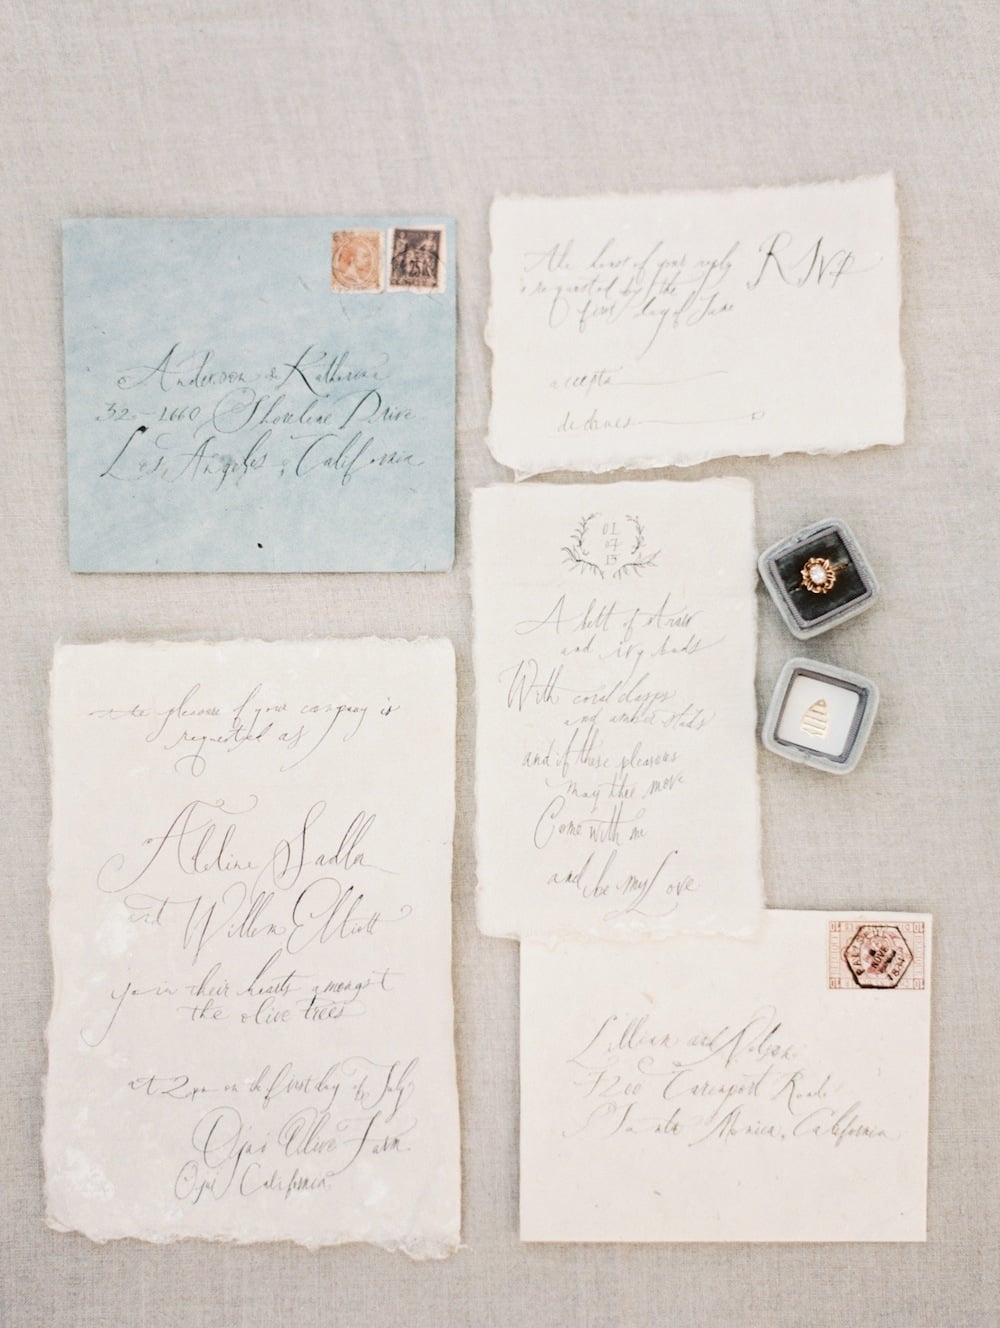 25
Anderson & Katherine
32-1660 Shoreline Drive
Los Angeles, California
RSVP
the honor of your reply
is requested by the
first day of June
accepts
declines
01
07
15
A belt of straw
and ivy buds
With coral clasps
and amber studs
and if these pleasures
may thee move
Come with me
and be my Love
the pleasure of your company is
requested as
Adeline Sadla
and Willem Elliott
join their hearts amongst
the olive trees
at 2pm on the first day of July
Ojai Olive Farm
Ojai California
NOVE
Lillian and
7200 Davenport Road
Santa Monica, California